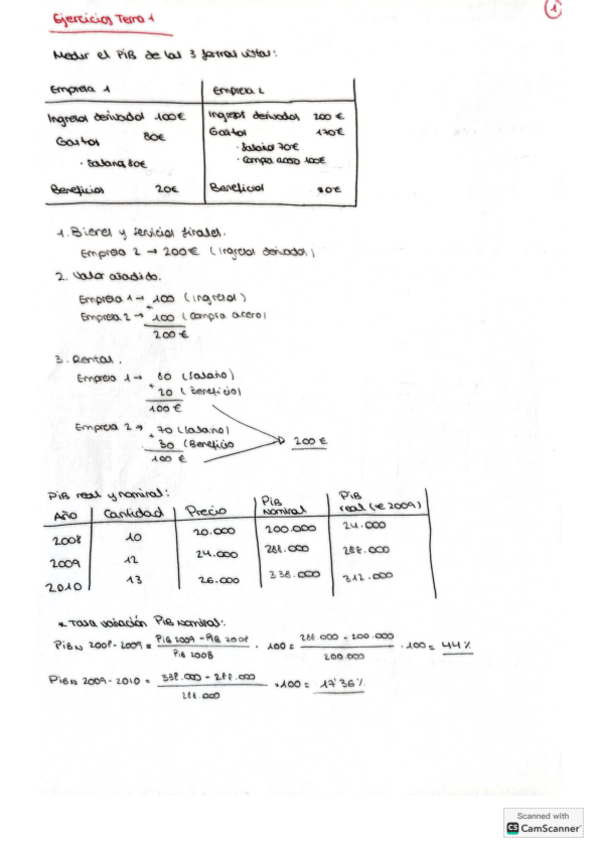 1
Ejercicios Tema 1
Medir el PIB de las 3 formas vistas:
Empresa 1 Empresa 2
Ingresos derivados 100€ Ingresos derivados 200 €
Gastos 80€ Gastos 170€
· Salarios 80€ · Salarios 70€
· Compra acero 100€
Beneficios 20€ Beneficios 30€
1. Bienes y servicios finales.
Empresa 2 → 200€ (Ingresos derivados)
2. Valor añadido.
Empresa 1 → 100 (ingresos)
+
Empresa 2 → 100 (compra acero)
200 €
3. Rentas.
Empresa 1 → 80 (Salario)
+ 20 (Beneficio)
100 €
Empresa 2 → 70 (Salario)
+ 30 (Beneficio
100 €
200 €
PIB real y nominal:
Año Cantidad Precio PIB Nominal PIB real (€ 2009)
2008 10 20.000 200.000 24.000
2009 12 24.000 288.000 288.000
2010 13 26.000 338.000 312.000
* Tasa variación PIB Nominal:
PIBN 2008-2009 = PIB 2009 - PIB 2008 / PIB 2008 · 100 = 288.000 - 200.000 / 200.000 · 100 = 44%
PIBN 2009-2010 = 338.000 - 288.000 / 288.000 · 100 = 17'36%
Scanned with
CS CamScanner